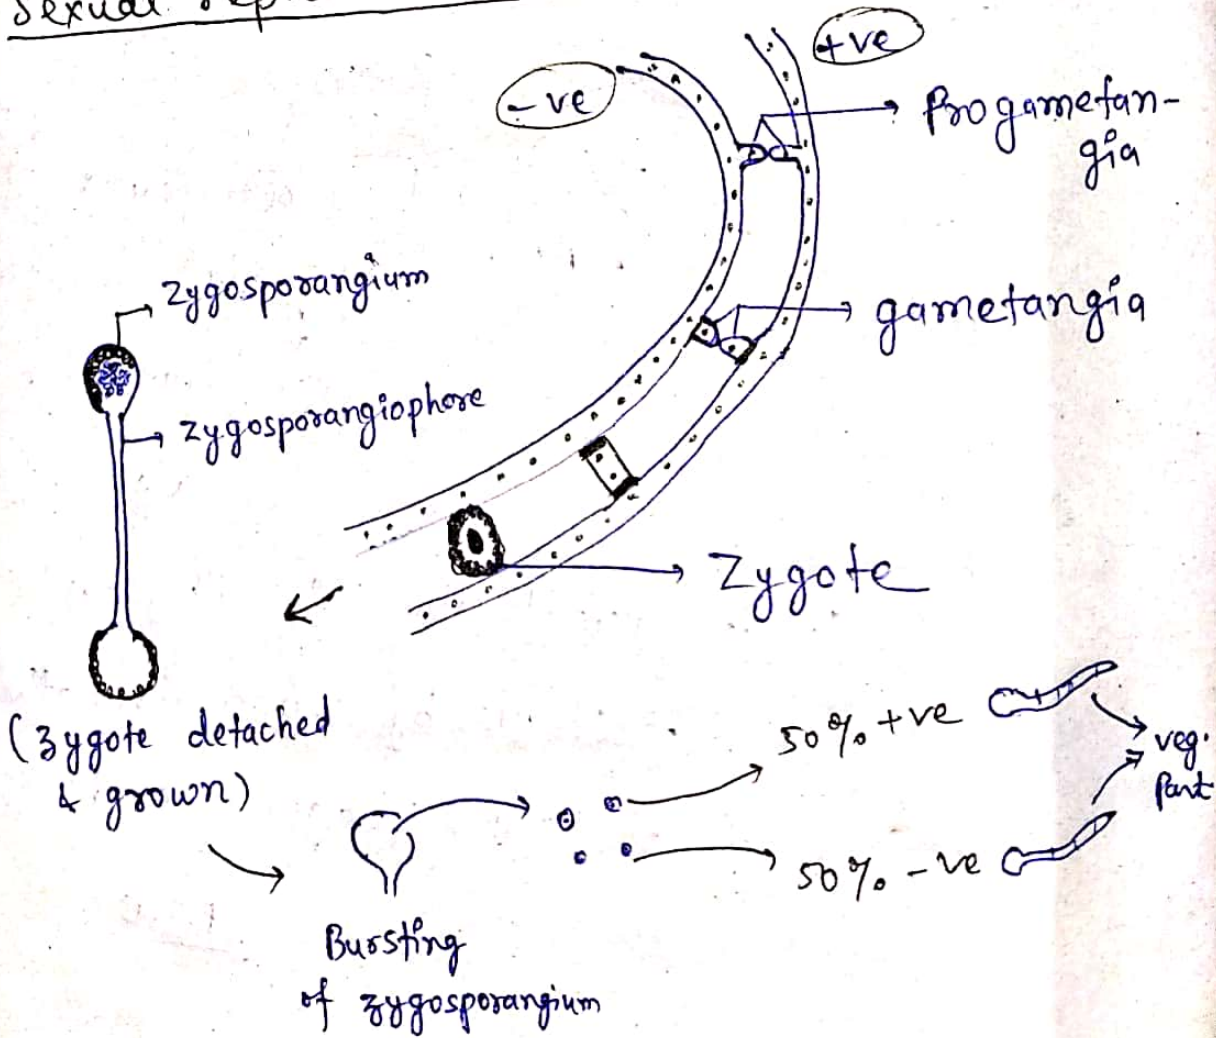 Sexual
+ve
- ve
Progametan-
gia
Zygosporangium
gametangia
Zygosporangiophore
Zygote
(Zygote detached
& grown)
50% +ve
veg.
Part
50% - ve
Bursting
of zygosporangium